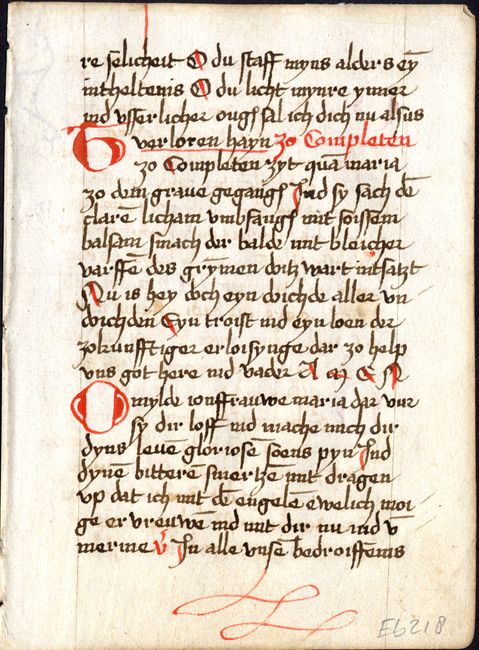 re selicheit O du staff myns alders eȳ
intheltenis O du licht mynre ynner
ind vsserlicher oug sal ich dich nu alsus
verloren hayn zo Completen
Zo Completen zyt quā maria
zo dem graue gegang Ind sy sach dē
clarē licham vmbfang mit soissem
balsam smach der balde mit bleicher
varffē des grymen doitz wart intsatzt
Nu is hey doch eyn doich de aller vn
doichden Eyn troist ind eyn loen der
zokunfftiger erloisynge dar zo help
vns got here ind vader A M E N
O mylde ionffrauwe maria dar vur
sy dir loff ind mache mich dir
dyns leuē gloriosē soens pyn Ind
dyne bitterē smertzē mit dragen
vp dat ich mit dē engelē ewelich moi
ge ervreuwē ind mit dir nu ind v̄
merme In alle vnsē bedroiffenis
Eb218